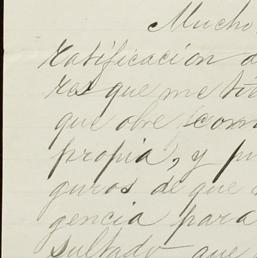 Mucho
ratificacion d
res que me ti
que obre com
propia, y pu
guros de que
gencia para
sultado que